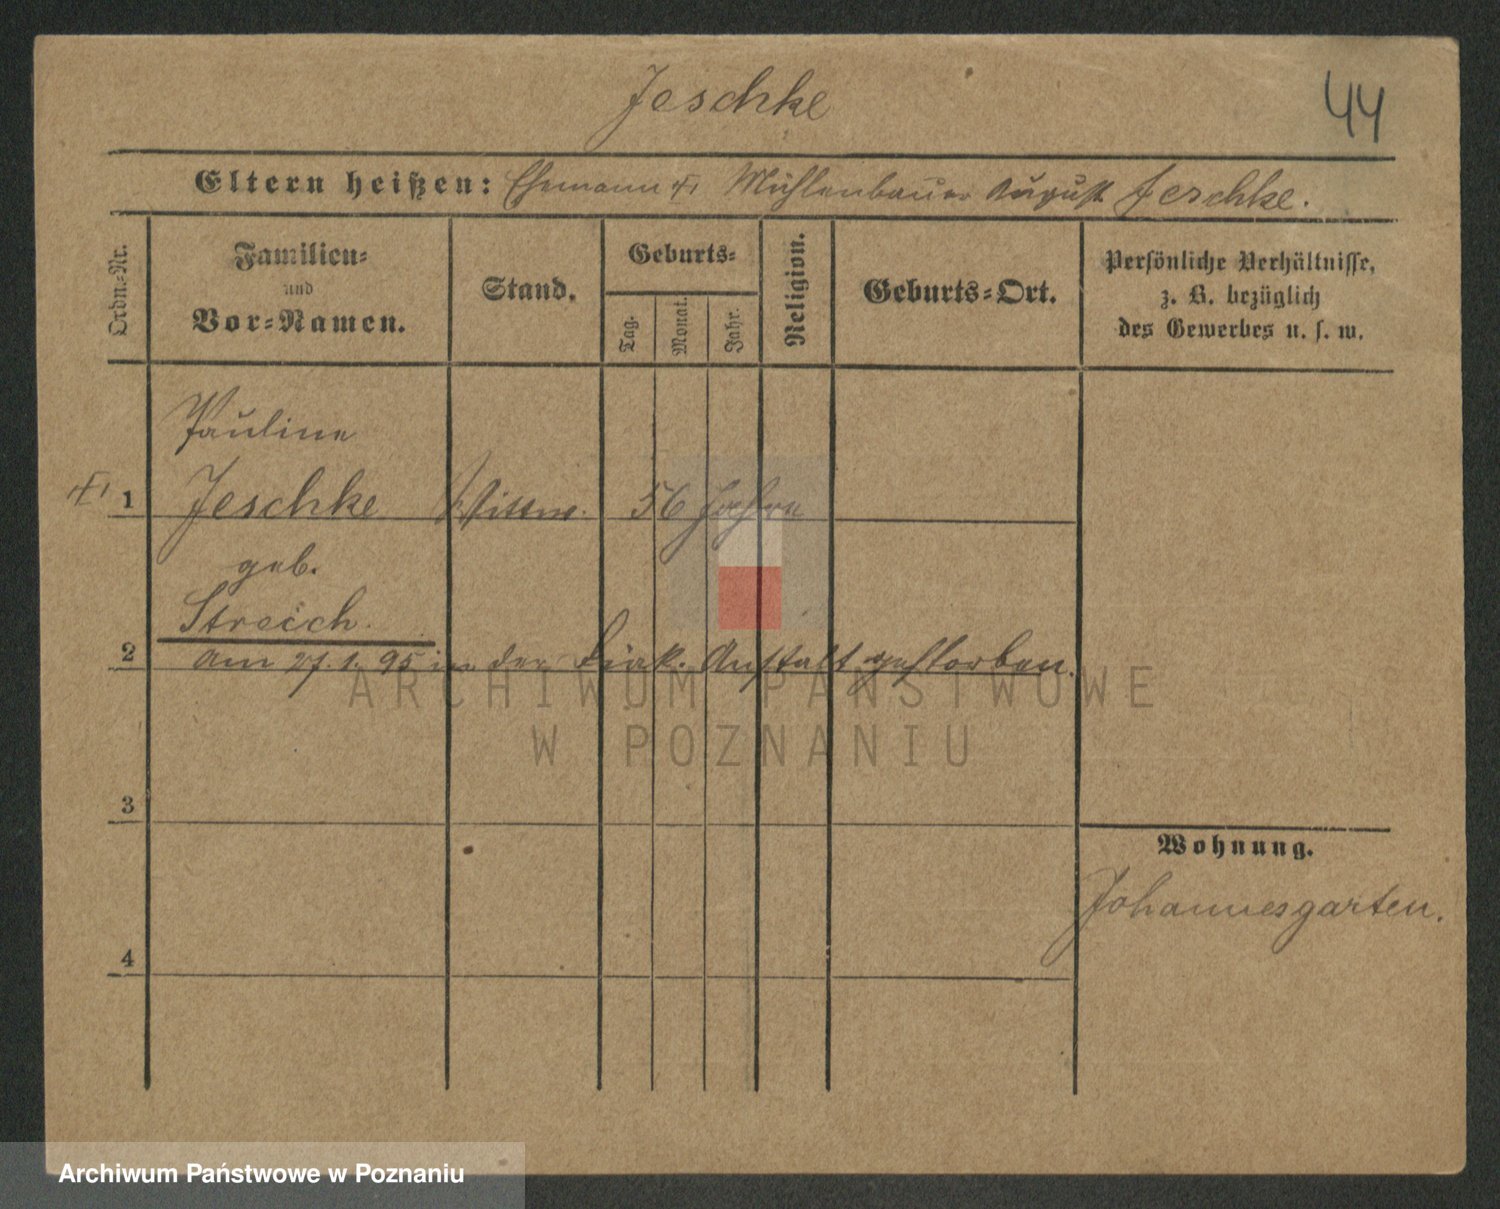 Jeschke
44
Eltern heißen: Ehemann † Mühlenbauer August Jeschke.
Ordn.-Nr.
Familien- und Vor-Namen.
Stand.
Geburts-
Tag.
Monat.
Jahr.
Religion.
Geburts-Ort.
Persönliche Verhältnisse, z. B. bezüglich des Gewerbes u. s. w.
Pauline
† 1 Jeschke Wittwe. 56 Jahre
geb.
Streich.
2 am 27.1.95 in der Diak. Anstalt gestorben.
ARCHIWUM PAŃSTWOWE
W POZNANIU
3
Wohnung.
Johannesgarten.
4
Archiwum Państwowe w Poznaniu